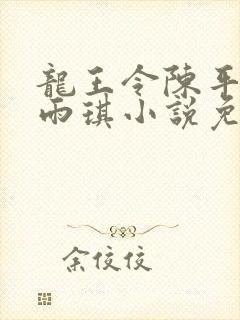 龍王令陳平
雨琪小說免
余佼佼